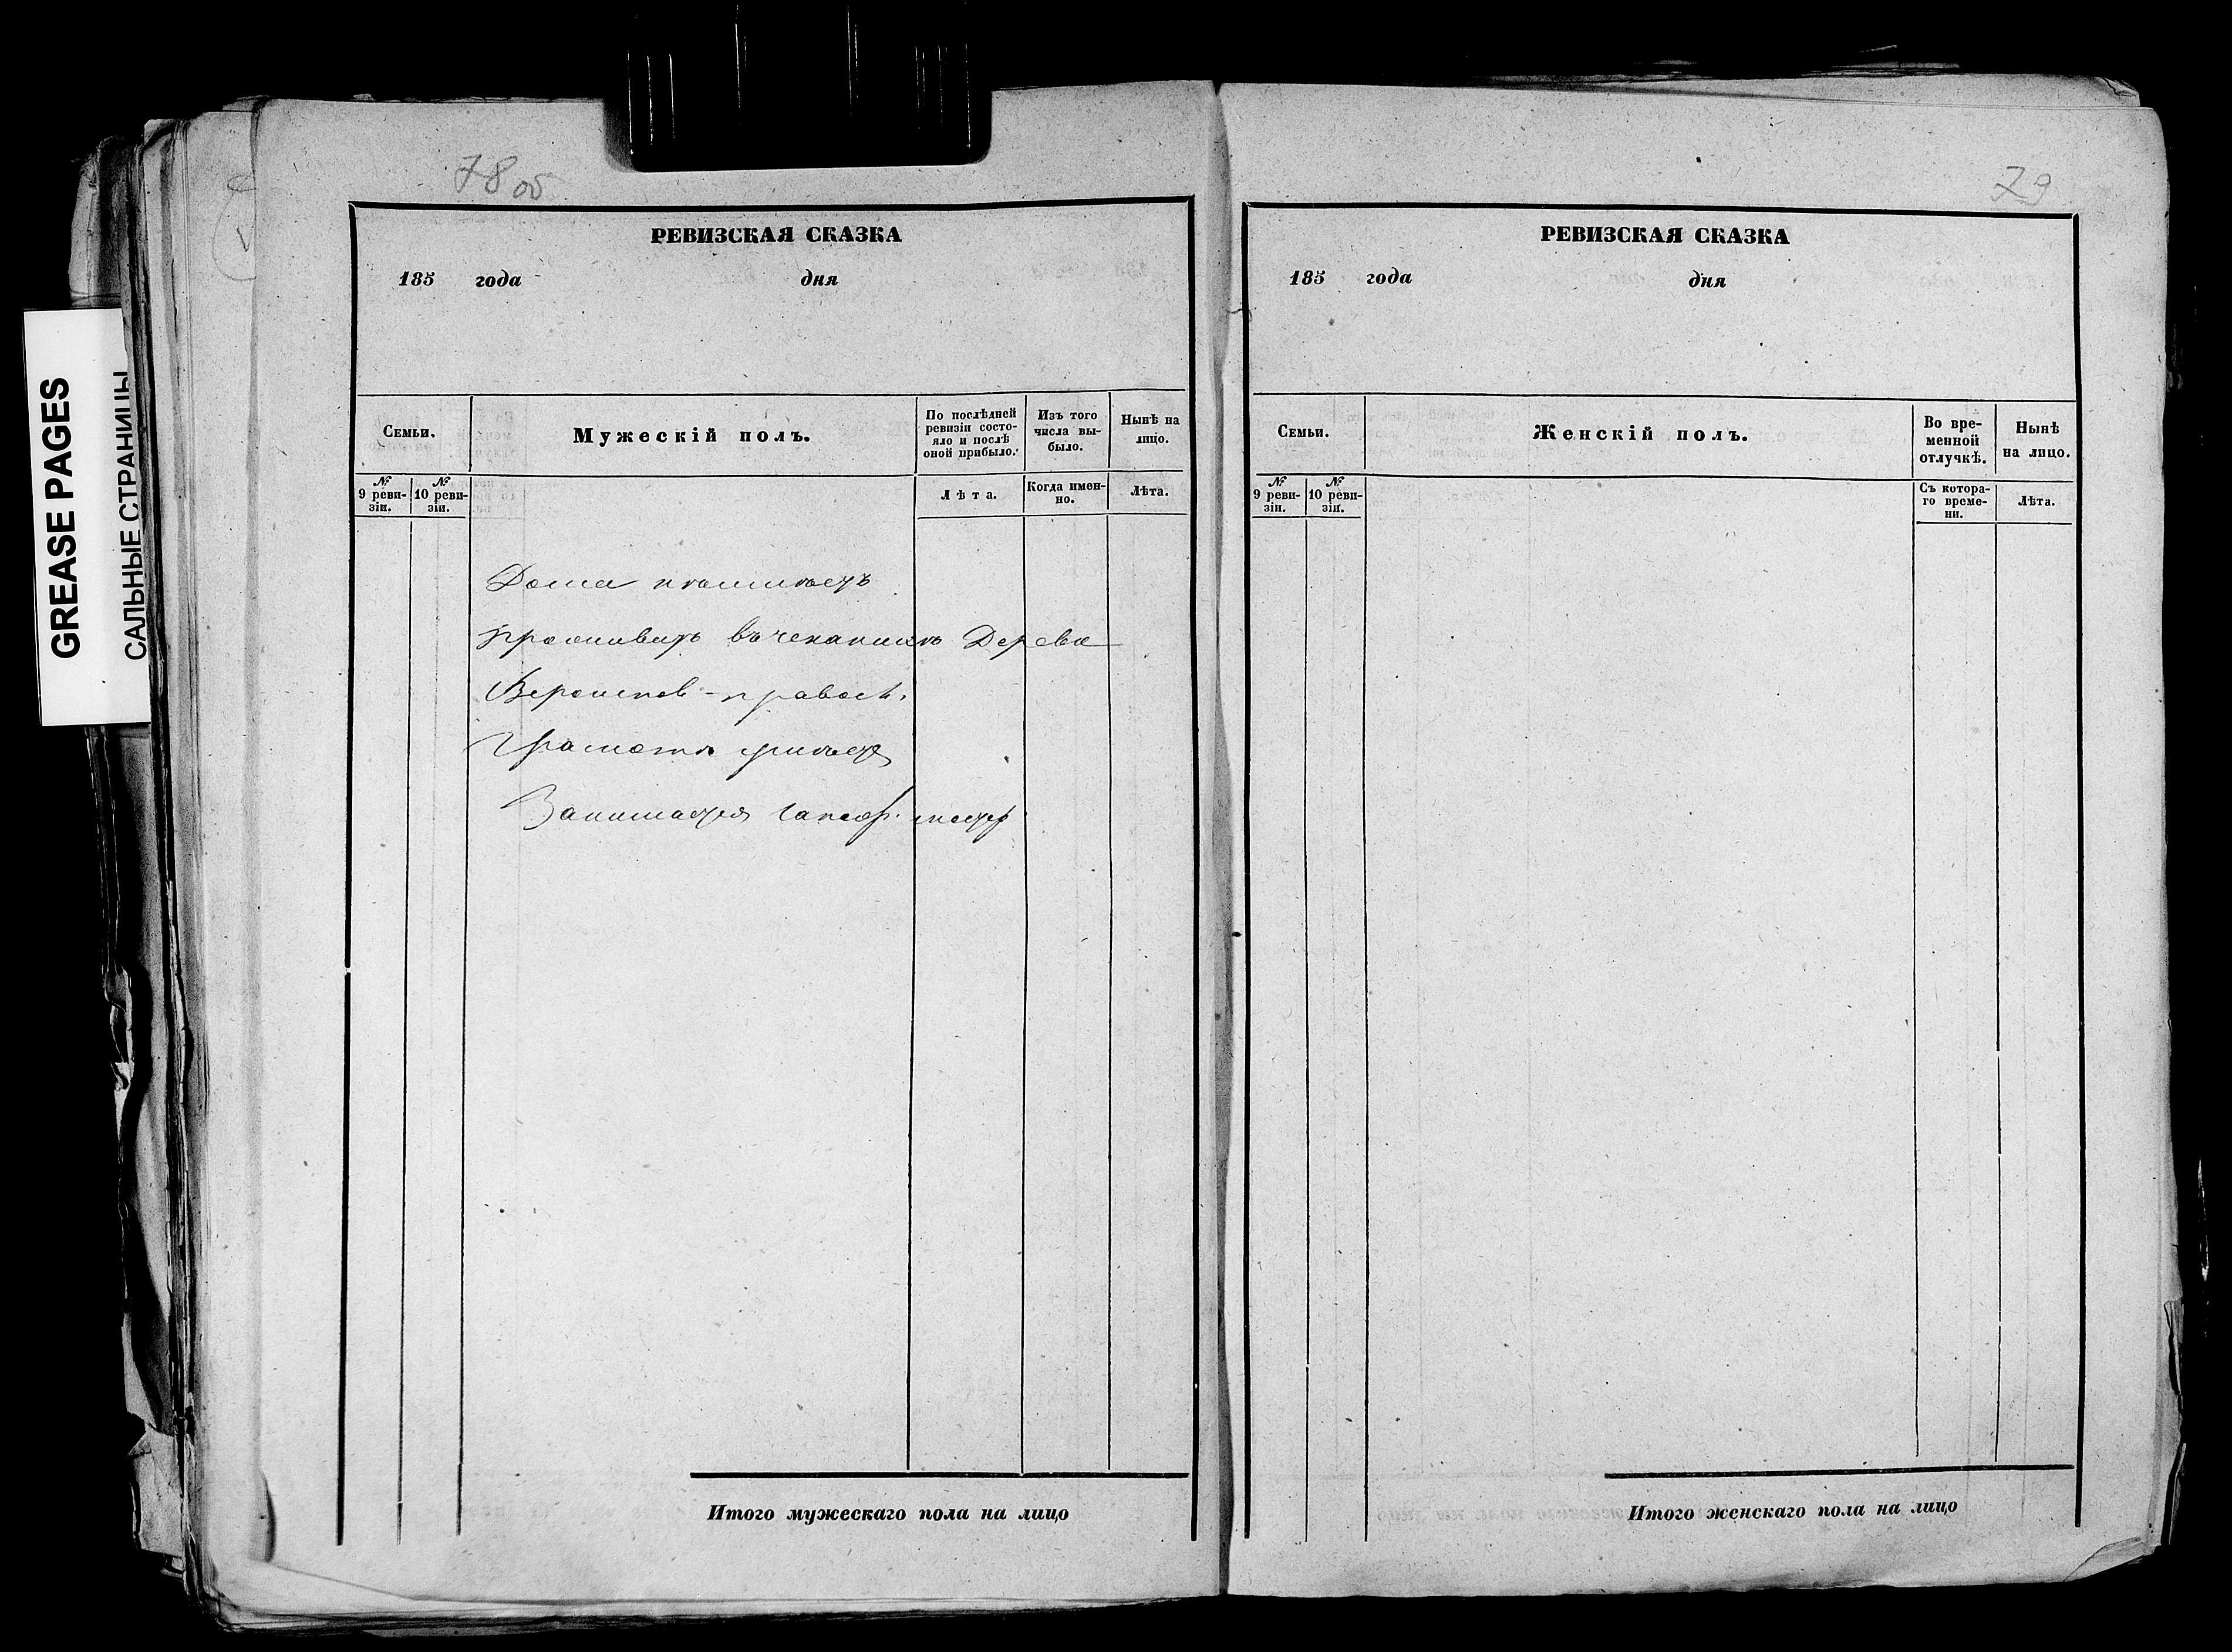 GREASE PAGES
САЛЬНЫЕ СТРАНИЦЫ
78 об
РЕВИЗСКАЯ СКАЗКА
185 года дня
Семьи.
Мужескій полъ.
По послѣдней ревизіи состо-
яло и послѣ оной прибыло.
Изъ того числа вы-
было.
Нынѣ на лицо.
№ 9 реви-
зіи.
№ 10 реви-
зіи.
Лѣта.
Когда имен-
но.
Лѣта.
Дома
проживатъ Дерева
Вероиспов - правосл.
Грамоте
Занимаетя
Итого мужескаго пола на лицо
79
РЕВИЗСКАЯ СКАЗКА
185 года дня
Семьи.
Женскій полъ.
Во вре-
менной
отлучкѣ.
Нынѣ
на лицо.
№ 9 реви-
зіи.
№ 10 реви-
зіи.
Съ котора-
го време-
ни.
Лѣта.
Итого женскаго пола на лицо